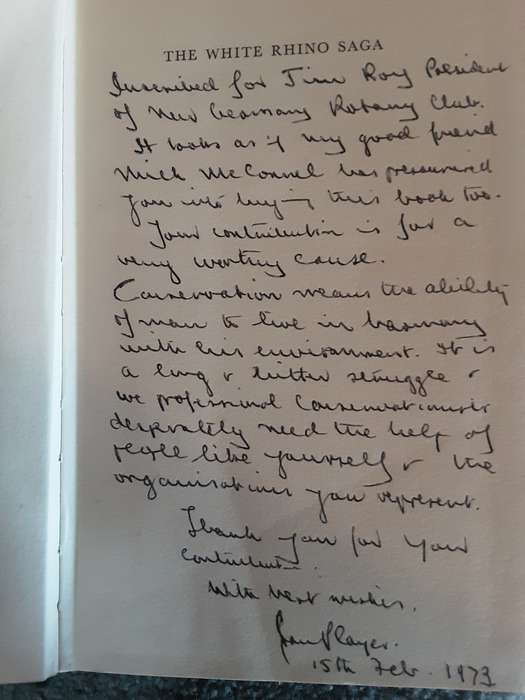 THE WHITE RHINO SAGA
Inscribed for Jim Roy President
of New Germany Rotary Club.
It looks as if my good friend
Mick McConnel has pressurised
you into buying this book too.
Your contribution is for a
very worthy cause.
Conservation means the ability
of man to live in harmony
with his environment. It is
a long & bitter struggle &
we professional Conservationists
desperately need the help of
people like yourself & the
organisations you represent.
Thank you for your
contribution.
With best wishes.
Ian Player.
15th Feb. 1973